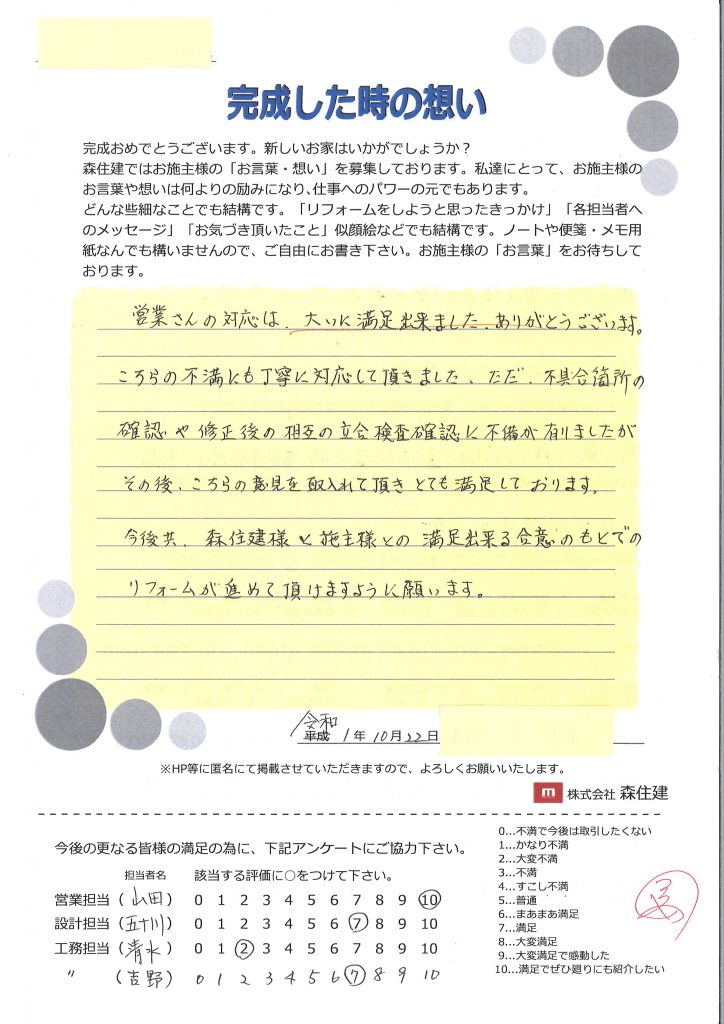 完成した時の想い
完成おめでとうございます。新しいお家はいかがでしょうか？
森住建ではお施主様の「お言葉・想い」を募集しております。私達にとって、お施主様の
お言葉や想いは何よりの励みになり、仕事へのパワーの元でもあります。
どんな些細なことでも結構です。「リフォームをしようと思ったきっかけ」「各担当者へ
のメッセージ」「お気づき頂いたこと」似顔絵などでも結構です。ノートや便箋・メモ用
紙なんでも構いませんので、ご自由にお書き下さい。お施主様の「お言葉」をお待ちして
おります。
営業さんの対応は、大いに満足出来ました。ありがとうございます。
こちらの不満にも丁寧に対応して頂きました。ただ、不具合箇所の
確認や修正後の相互の立合検査確認に不備が有りましたが
その後、こちらの意見を取入れて頂きとても満足しております。
今後共、森住建様と施主様との満足出来る合意のもとでの
リフォームが進めて頂けますように願います。
令和
平成 1年10月22日
※HP等に匿名にて掲載させていただきますので、よろしくお願いいたします。
m 株式会社 森住建
今後の更なる皆様の満足の為に、下記アンケートにご協力下さい。
担当者名 該当する評価に○をつけて下さい。
営業担当（山田） 0 1 2 3 4 5 6 7 8 9 10
設計担当（五十川） 0 1 2 3 4 5 6 7 8 9 10
工務担当（清水） 0 1 2 3 4 5 6 7 8 9 10
〃（吉野） 0 1 2 3 4 5 6 7 8 9 10
0…不満で今後は取引したくない
1…かなり不満
2…大変不満
3…不満
4…すこし不満
5…普通
6…まあまあ満足
7…満足
8…大変満足
9…大変満足で感動した
10…満足でぜひ廻りにも紹介したい